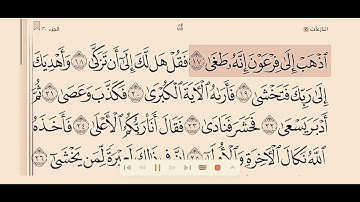 النازعات
الجزء ٣٠
ٱذۡهَبۡ إِلَىٰ فِرۡعَوۡنَ إِنَّهُۥ طَغَىٰ ١٧ فَقُلۡ هَل لَّكَ إِلَىٰٓ أَن تَزَكَّىٰ ١٨ وَأَهۡدِيَكَ
إِلَىٰ رَبِّكَ فَتَخۡشَىٰ ١٩ فَأَرَىٰهُ ٱلۡأٓيَةَ ٱلۡكُبۡرَىٰ ٢٠ فَكَذَّبَ وَعَصَىٰ ٢١ ثُمَّ
أَدۡبَرَ يَسۡعَىٰ ٢٢ فَحَشَرَ فَنَادَىٰ ٢٣ فَقَالَ أَنَا۠ رَبُّكُمُ ٱلۡأَعۡلَىٰ ٢٤ فَأَخَذَهُ
ٱللَّهُ نَكَالَ ٱلۡأٓخِرَةِ وَٱلۡأُولَىٰٓ ٢٥ إِنَّ فِي ذَٰلِكَ لَعِبۡرَةٗ لِّمَن يَخۡشَىٰٓ ٢٦